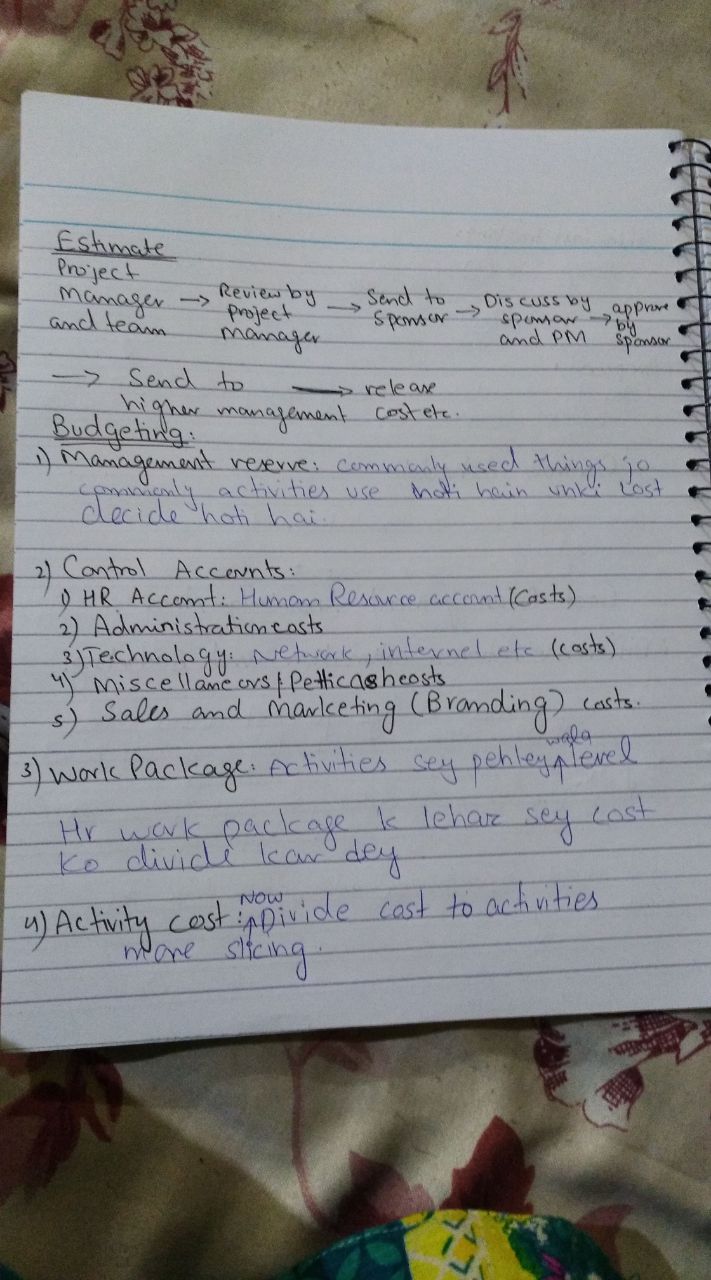 Estimate
Project
Manager → Review by → Send to → Discuss by → approve
and team Project sponsor sponsor by
manager and PM sponsor
→ Send to → release
higher management cost etc.
Budgeting:
1) Management reserve: commonly used things jo
commonly activities use hoti hain unki cost
decide hoti hai.
2) Control Accounts:
1) HR Account: Human Resource account (Costs)
2) Administration costs
3) Technology: Network, internel etc (costs)
4) Miscellaneous/Petticash costs
5) Sales and Marketing (Branding) costs.
3) Work Package: Activities sey pehley wala level
Hr work package k lehaz sey cost
ko divide kar dey
4) Activity cost: NOW Divide cost to activities
more slicing.